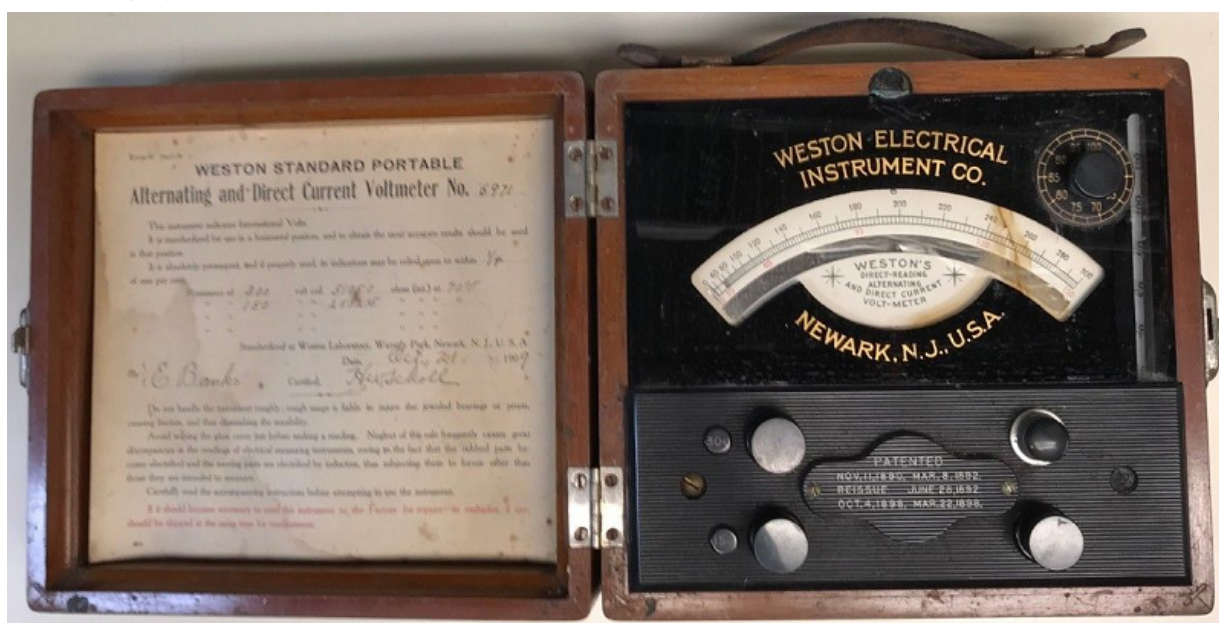 WESTON STANDARD PORTABLE
Alternating and Direct Current Voltmeter No.
This instrument indicates International Volts.
It is standardized for use in a horizontal position, and to obtain the most accurate results should be used
in that position.
It is absolutely permanent, and if properly used, its indications may be relied upon to within
of one per cent.
Resistance of 300 volt coil ohms (int.) at
150
Standardized at Weston Laboratory, Waverly Park, Newark, N. J., U. S. A.
Date 1909
By E. Banks Certified,
Do not handle the instrument roughly; rough usage is liable to injure the jeweled bearings or points,
causing friction, and thus diminishing the sensibility.
Avoid rubbing the glass cover just before making a reading. Neglect of this rule frequently causes great
discrepancies in the readings of electrical measuring instruments, owing to the fact that the rubbed parts be-
come electrified and the moving parts are electrified by induction, thus subjecting them to forces other than
those they are intended to measure.
Carefully read the accompanying instructions before attempting to use the instrument.
If it should become necessary to send this instrument to the Factory for repairs
should be shipped at the same time for readjustment.
WESTON ELECTRICAL
INSTRUMENT CO.
100
90
85
80
75
70
40 60 80 100 120 140 160 180 200 220 240 260 280 300
150
WESTON'S
DIRECT-READING
ALTERNATING
AND DIRECT CURRENT
VOLT-METER
NEWARK, N.J., U.S.A.
300
150
PATENTED
NOV, 11, 1890, MAR, 8, 1892,
REISSUE JUNE 28, 1892
OCT, 4, 1898, MAR, 22, 1898,